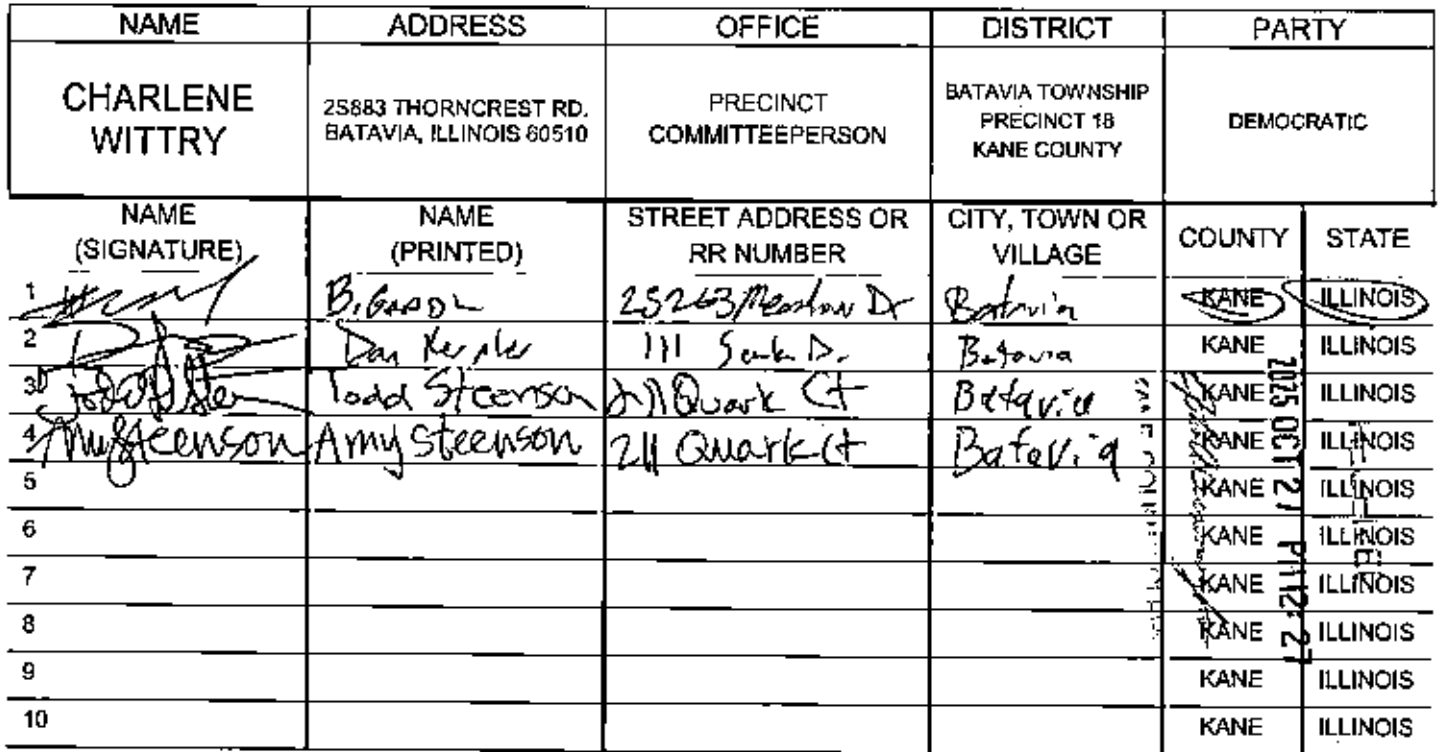 NAME ADDRESS OFFICE DISTRICT PARTY
CHARLENE WITTRY
2S883 THORNCREST RD.
BATAVIA, ILLINOIS 60510
PRECINCT
COMMITTEEPERSON
BATAVIA TOWNSHIP
PRECINCT 18
KANE COUNTY
DEMOCRATIC
NAME (SIGNATURE) NAME (PRINTED) STREET ADDRESS OR RR NUMBER CITY, TOWN OR VILLAGE COUNTY STATE
1 B. 2S263 Meadow Dr Batavia KANE ILLINOIS
2 Dan 111 Batavia KANE ILLINOIS
3 Todd Steenson 211 Quark Ct Batavia KANE ILLINOIS
4 Amy Steenson Amy Steenson 211 Quark Ct Batavia KANE ILLINOIS
5 KANE ILLINOIS
6 KANE ILLINOIS
7 KANE ILLINOIS
8 KANE ILLINOIS
9 KANE ILLINOIS
10 KANE ILLINOIS
2025 OCT 27 PM 12: 27